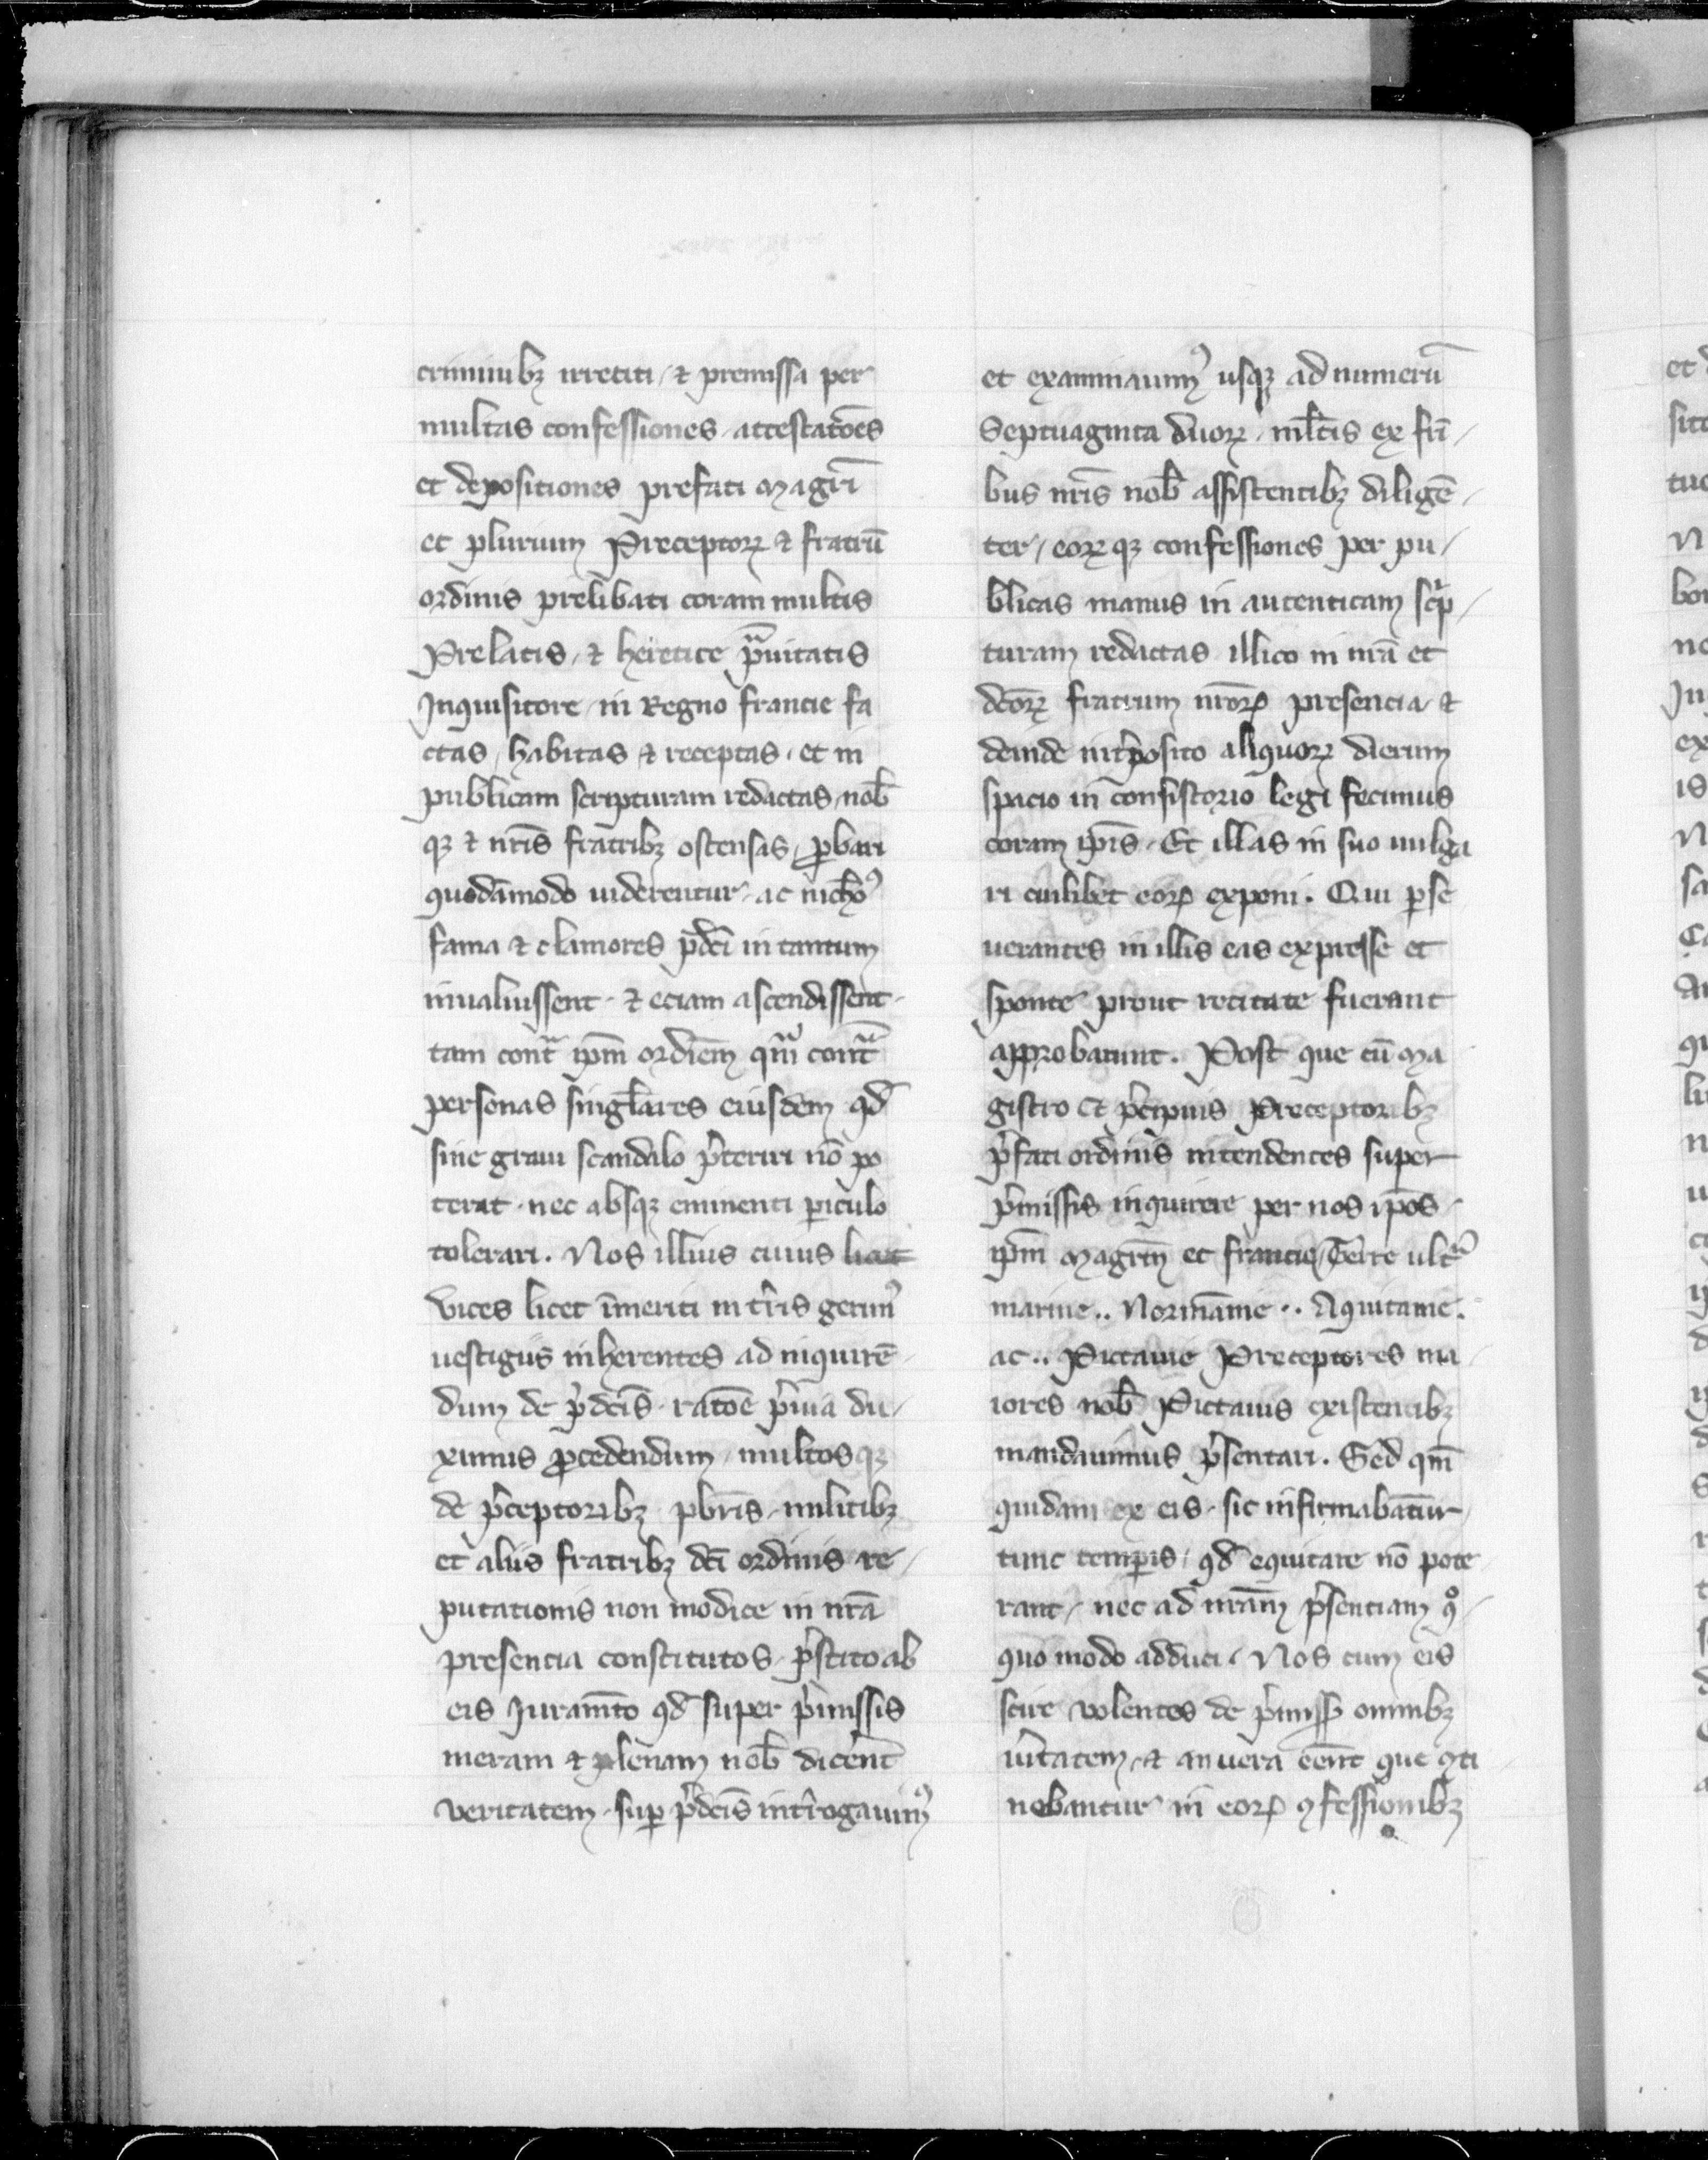 criminibꝫ irretiti / ⁊ premissa per
multas confessiones attestatōes
et depositiones prefati Magrī
et plurium Preceptoꝝ ⁊ fratrū
ordinis prelibati coram multis
Prelatis / ⁊ heretice pͣuitatis
Inquisitore in Regno francie fa
ctas / habitas ⁊ receptas · et in
publicam scripturam redactas / nob̄
qꝫ ⁊ nr̄is fratribꝫ ostensas / ꝓbari
quodāmodo uiderentur · ac nichoꝰ
fama ⁊ clamores p̄dc̄i in tantum
inualuissent · ⁊ eciam ascendissent ·
tam contͣ ip̄m ordinem qm̄ contͣ
personas singl̄ares eiusdem qd̄
sine graui scandalo p̄teriri nō po
terat · nec absqꝫ eminenti ꝑiculo
tolerari . Nos illius cuius
vices licet īmeriti in t̄ris gerimꝰ
uestigiis inherentes ad inquirē
dum de p̄dc̄is · ratōe p̄uia du /
ximus ꝓcedendum / multos qꝫ
de p̄ceptoribꝫ · pbr̄is · militibꝫ
et aliis fratribꝫ dc̄i ordinis re /
putationis non modice in nr̄a
presencia constitutos · p̄stito ab
eis Iuramēto qd̄ super p̄missis
meram ⁊ plenam nob̄ dicerēt
veritatem · suꝑ p̄dc̄is int̄rogauimꝰ
et examinauimꝰ usqꝫ ad numerū
Septuaginta duoꝝ · ml̄tis ex fr̄i /
bus nr̄is nob̄ assistentibꝫ diligē /
ter / eoꝝqꝫ confessiones per pu /
blicas manus in autenticam scp̄ /
turam redactas illico in nr̄a et
dc̄oꝝ fratrum nr̄oꝝ presencia / ⁊
deinde int̄posito aliquoꝝ dierum
spacio in consistorio legi fecimus
coram ip̄is · Et illas in suo uulga
ri cuilibet eoꝝ exponi . Qui ꝑse
uerantes in illis eas expresse et
sponte prout recitate fuerant
approbarunt . Post que cū Ma
gistro et p̄cipuis Preceptoribꝫ
p̄fati ordinis intendentes super
p̄missis inquirere per nos ip̄os ·
ip̄m Magrm̄ et francie / Terre ultͣ
marine .. Normānie .. Aquitanie .
ac .. Pictauie Preceptores ma /
iores nob̄ Pictauis existentibꝫ
mandauimus p̄sentari . Sed qm̄
quidam ex eis · sic infirmabantur
tunc temꝑis / qd̄ equitare nō pote
rant / nec ad nr̄am p̄sentiam ꝯ /
quo modo adduci / Nos cum eis
scire volentes de p̄miss̄ omnibꝫ
ūitatem / ⁊ an vera eēnt que ꝯti
nebantur in eoꝝ ꝯfessionibꝫ